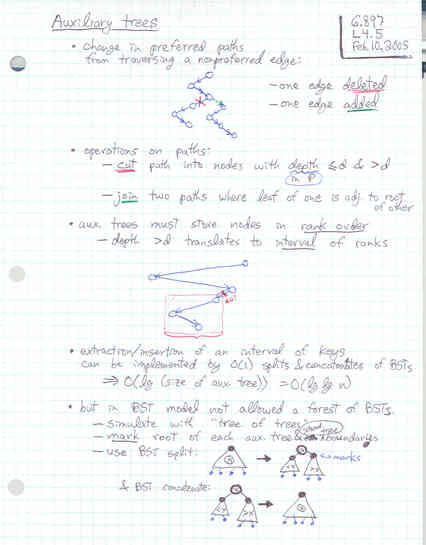 Auxiliary trees
6.897
L4.5
Feb. 10, 2005
• change in preferred paths
from traversing a nonpreferred edge:
— one edge deleted
— one edge added
• operations on paths:
— cut path into nodes with depth ≤d & >d
in P
— join two paths where leaf of one is adj. to root
of other
• aux. trees must store nodes in rank order
— depth >d translates to interval of ranks
• extraction/insertion of an interval of keys
can be implemented by O(1) splits & concatenates of BSTs
⇒ O(lg (size of aux. tree)) = O(lg lg n)
• but in BST model not allowed a forest of BSTs.
— simulate with "tree of trees"
— mark root of each aux. tree boundaries
— use BST split:
marks
& BST concatenate: